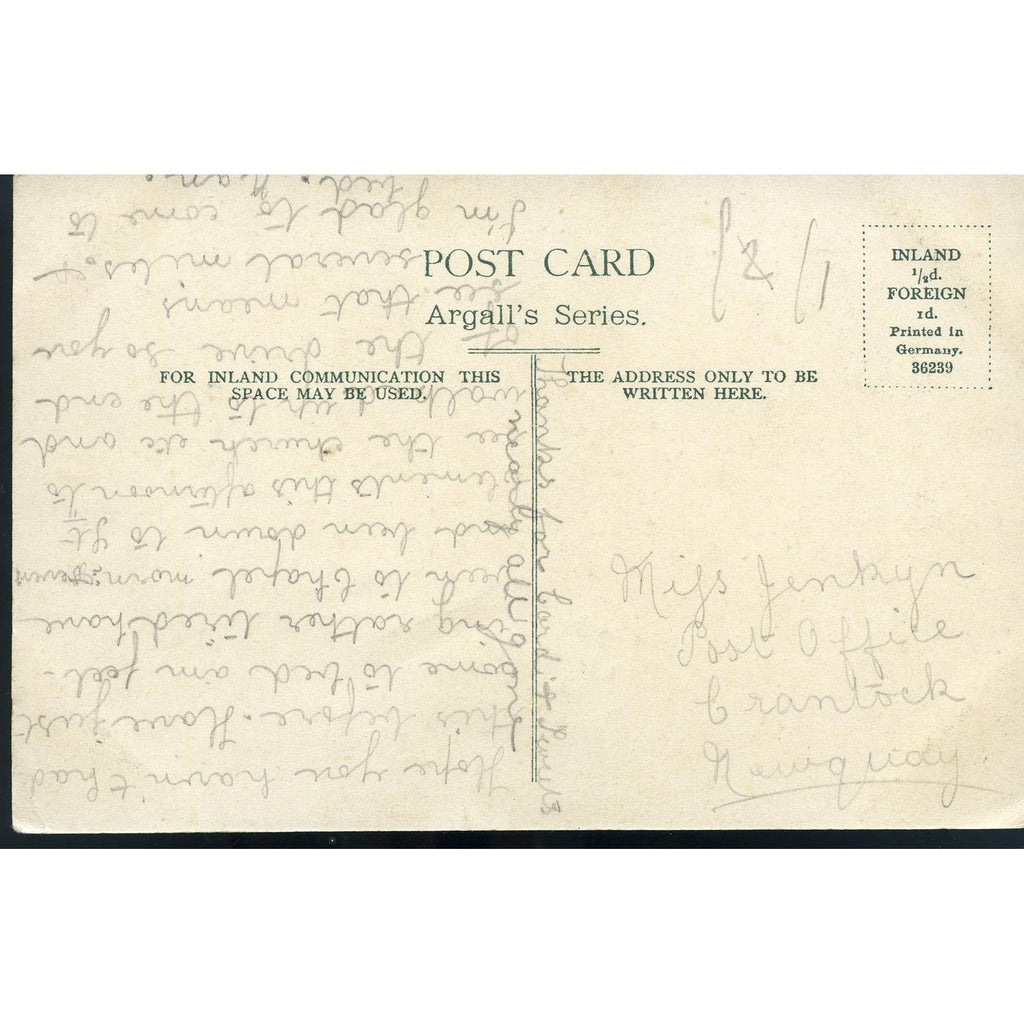 POST CARD
Argall's Series.
FOR INLAND COMMUNICATION THIS
SPACE MAY BE USED.
THE ADDRESS ONLY TO BE
WRITTEN HERE.
INLAND
1/2d.
FOREIGN
1d.
Printed in
Germany.
36239
Miss Jenkyn
Post Office
Crantock
Newquay.
Hope you havn't had
this before. Have just
come to bed am feel-
ing rather tired have
been to Chapel morn:
and been down to
this afternoon to
see the church etc and
walked up to the end
of the drive so you
see that means
several miles.
I'm glad to come to
bed.
Thanks for